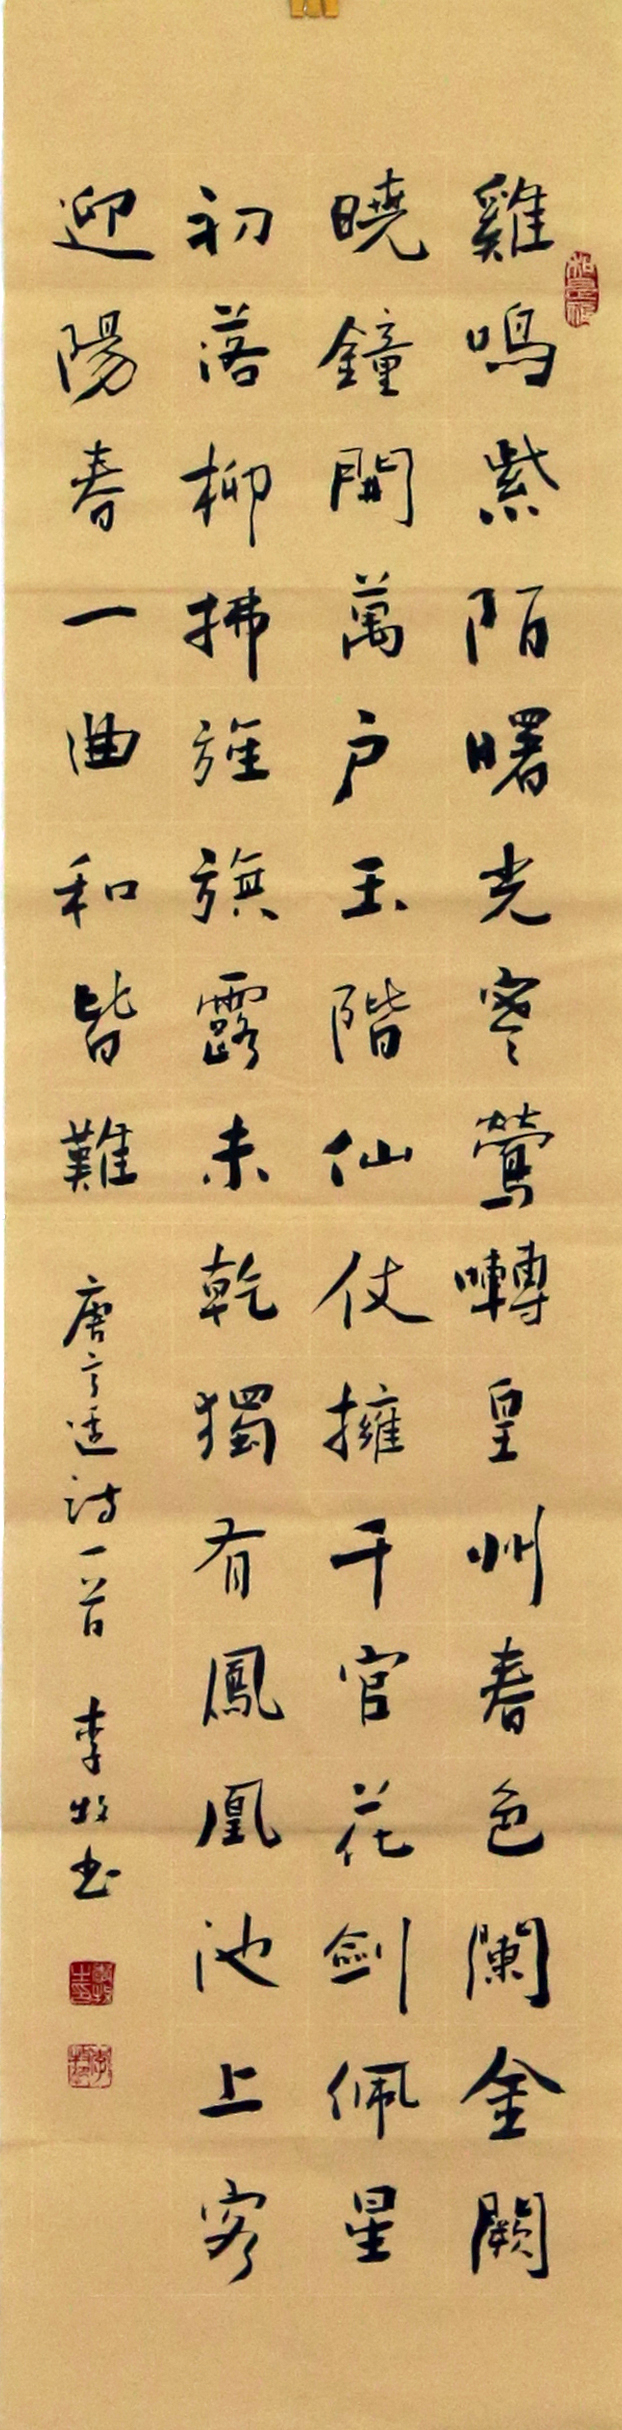 雞鳴紫陌曙光寒鶯囀皇州春色闌金闕
曉鐘開萬户玉階仙仗擁千官花劍佩星
初落柳拂旌旗露未乾獨有鳳凰池上客
迎陽春一曲和皆難 唐詩一首 李牧书